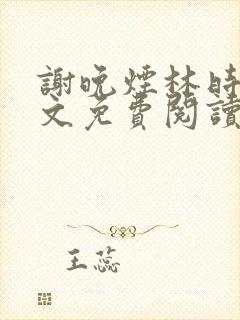 謝晚煙林時
文免費閱讀
王蕊